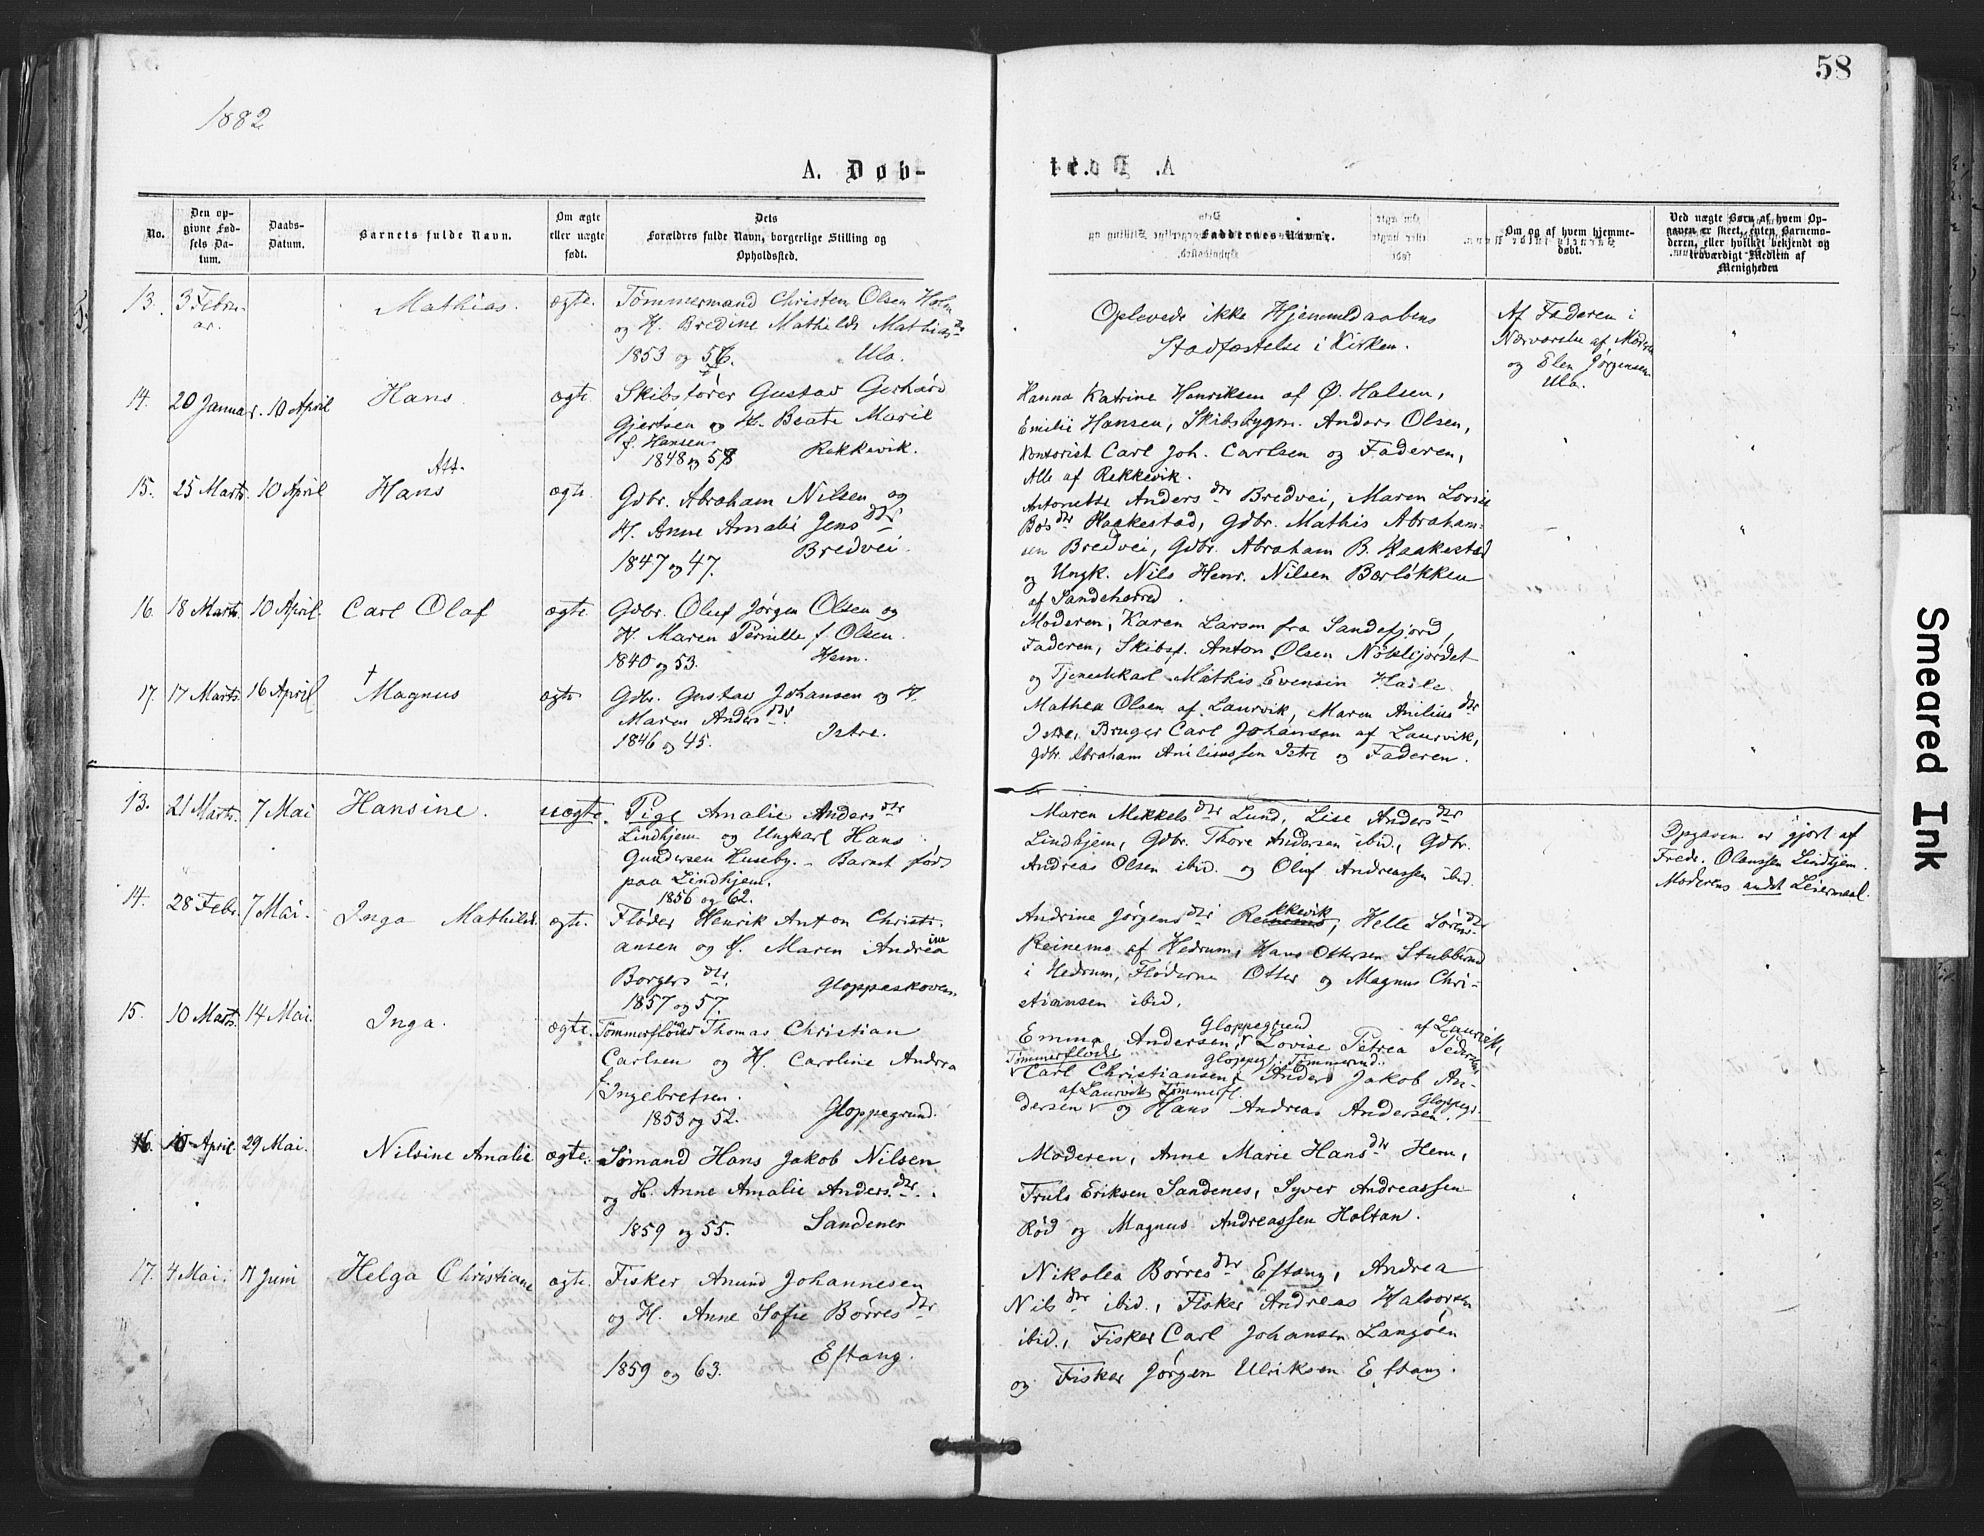 1882
58
A. Døb-
te.
A. D
No.
Den op-
givne Fød-
sels Da-
tum.
Daabs-
Datum.
Barnets fulde Navn.
Om ægte
eller uægte
født.
Dets
Forældres fulde Navn, borgerlige Stilling og
Opholdssted.
Faddernes Navne.
Om og af hvem hjemme-
døbt.
Ved uægte Børn af hvem Op-
gaven er skeet, enten Barnemo-
deren, eller hvilket bekjendt og
troværdigt Medlem af
Menigheden
13. 3 Febru-
ar.
Mathias.
ægte.
Tømmermand Christen Olsen Holm
og H. Bredine Mathilde Mathias dtr
1853 og 56. Ula.
Oplevede ikke Hjemmedaabens
Stadfæstelse i Kirken.
Af Faderen i
Nærværelse af Moderen
og Elen Jørgensen
Ula.
14. 20 Januar. 10 April
Hans.
ægte.
Skibsfører Gustav Gerhard
Gjertsen og H. Beate Marie
f. Hansen.
1848 og 58 Rekkevik.
Hanna Katrine Henriksen af Ø. Halsen,
Emilie Hansen, Skibsbygm. Anders Olsen,
Kontorist Carl Joh. Carlsen og Faderen,
Alle af Rekkevik.
15. 25 Marts. 10 April
Hans
ægte.
Gdbr. Abraham Nilsen og
H. Anne Amalie Jens dtr
1847 og 47. Bredvei.
Antonette Anders dtr Bredvei, Maren Lovise
Bøs dtr Haakestad, Gdbr. Mathis Abraham-
sen Bredvei, Gdbr. Abraham B. Haakestad
og Ungk. Nils Henr. Nilsen Bærløkken
af Sandeherred.
16. 18 Marts. 10 April.
Carl Olaf
ægte
Gdbr. Oluf Jørgen Olsen og
H. Maren Pernille f. Olsen.
1840 og 53. Hem.
Moderen, Karen Larsen fra Sandefjord,
Faderen, Skibsf. Anton Olsen Nøklegjordet
og Tjenestekarl Mathis Evensen Hasle.
17. 17 Marts. 16 April
† Magnus
ægte
Gdbr. Gustav Johansen og H.
Maren Anders dtr
1846 og 45. Istre.
Mathea Olsen af Laurvik, Maren Anilius dtr
Istre, Bruger Carl Johansen af Laurvik,
Gdbr. Abraham Aniliussen Istre og Faderen.
13. 21 Marts. 7 Mai
Hansine.
uægte.
Pige Amalie Anders dtr
Lindhjem og Ungkarl Hans
Gundersen Huseby. - Barnet født
paa Lindhjem.
1856 og 62.
Maren Mikkels dtr Lund, Lise Anders dtr
Lindhjem, Gdbr. Thore Andersen ibid., Gdbr.
Andreas Olsen ibid. og Oluf Andreassen ibid.
Opgaven er gjort af
Fredr. Olaussen Lindhjem.
Moderens andet Leiermaal.
14. 28 Febr. 7 Mai.
Inga Mathilde.
ægte.
Fløder Henrik Anton Christi-
ansen og H. Maren Andrea ine
Borgers dtr.
1857 og 57. Gloppeskoven.
Andrine Jørgens dtr Rekkevik, Helle Sørens dtr
Reinemo af Hedrum, Hans Ottersen Stubberud
i Hedrum, Fløderne Otter og Magnus Chri-
stiansen ibid.
15. 10 Marts. 14 Mai.
Inga.
ægte.
Tømmerfløder Thomas Christian
Carlsen og H. Caroline Andrea
f. Ingebretsen.
1853 og 52. Gloppegrund.
Gloppegrund af Laurvik,
Emma Andersen, Lovise Petrea Pedersen
Tømmerfløder Gloppeg., Tømmermd.
Carl Christiansen, Anders Jakob An-
af Laurvik Tømmerfl. Gloppegr.
dersen og Hans Andreas Andersen.
16. 10 April. 29 Mai.
Nilsine Amalie
ægte.
Sømand Hans Jakob Nilsen
og H. Anne Amalie Anders dtr.
1859 og 55. Sandenes
Moderen, Anne Marie Hans dtr Hem,
Truls Eriksen Sandenes, Syver Andreassen
Rød og Magnus Andreassen Holtan.
17. 4 Mai. 11 Juni
Helga Christiane
ægte.
Fisker Anund Johannesen
og H. Anne Sofie Børres dtr
1859 og 63. Eftang.
Nikolea Børres dtr Eftang, Andrea
Nils dtr ibid., Fisker Andreas Halvorsen
ibid., Fisker Carl Johansen Langøen
og Fisker Jørgen Ulriksen Eftang.
Smeared Ink